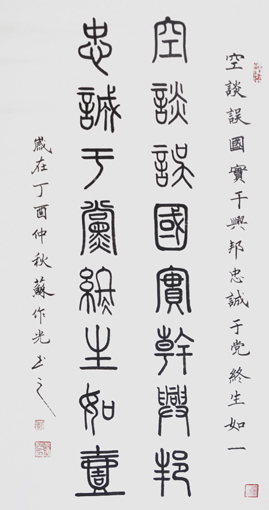 空談誤國實幹興邦
忠誠于黨終生如壹
空談誤國實干興邦忠誠于党終生如一
歲在丁酉仲秋蘇作光书之